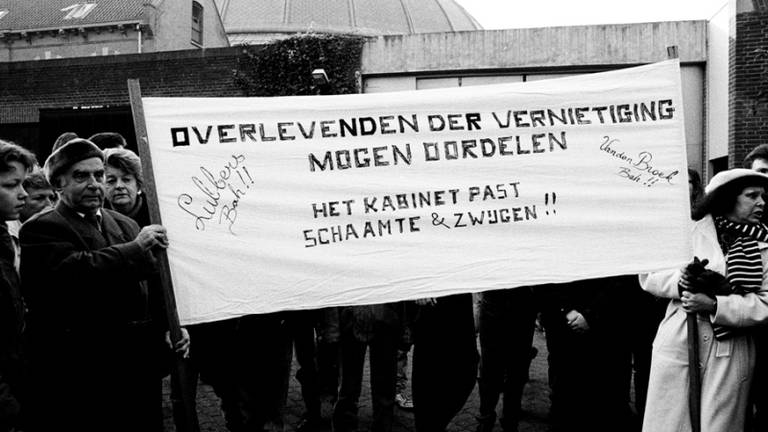 OVERLEVENDEN DER VERNIETIGING
MOGEN OORDELEN
Lubbers
Bah!!
Van den Broek
Bah!!
HET KABINET PAST
SCHAAMTE & ZWIJGEN!!